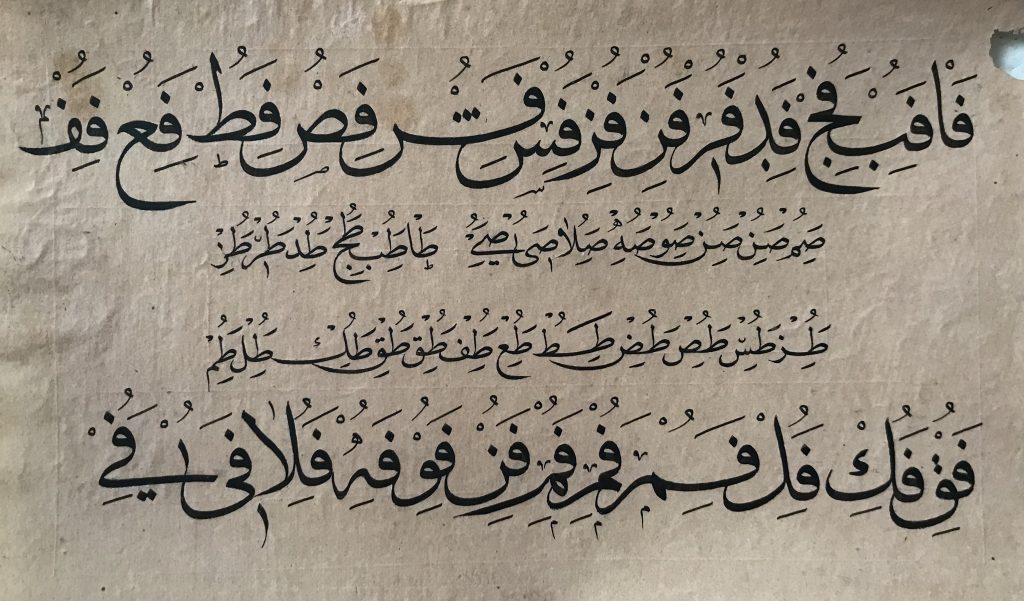 فا فب فج فد فر فز فز فس فش فص فط فع فف
صم صن صن صو صه صلا صى صے طا طب طج طد طر طز
طز طس طص طض طط طع طف طق طق طك طل طم
فق فك فل فم فم فم فن فو فه فلا فى فے